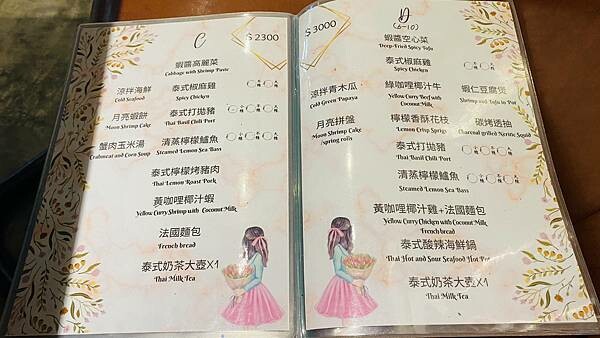 C
$ 2300
蝦醬高麗菜
Cabbage with Shrimp Paste
涼拌海鮮
Cold Seafood
泰式椒麻雞
Spicy Chicken
月亮蝦餅
Moon Shrimp Cake
泰式打拋豬
Thai Basil Chili Port
蟹肉玉米湯
Crabmeat and Corn Soup
清蒸檸檬鱸魚
Steamed Lemon Sea Bass
泰式檸檬烤豬肉
Thai Lemon Roast Pork
黃咖哩椰汁蝦
Yellow Curry Shrimp with Coconut Milk
法國麵包
French bread
泰式奶茶大壺X1
Thai Milk Tea
$ 3000
D
(8-10)
蝦醬空心菜
Deep-Fried Spicy Tofu
泰式椒麻雞
Spicy Chicken
涼拌青木瓜
Cold Green Papaya
綠咖哩椰汁牛
Yellow Curry Beef with
Coconut Milk
蝦仁豆腐煲
Shrimp and Tofu in Pot
月亮拼盤
Moon Shrimp Cake
Spring rolls
檸檬香酥花枝
Lemon Crisp Sprigs
碳烤透抽
Charcoal grilled Neritic Squid
泰式打拋豬
Thai Basil Chili Port
清蒸檸檬鱸魚
Steamed Lemon Sea Bass
黃咖哩椰汁雞+法國麵包
Yellow Curry Chicken with Coconut Milk
French bread
泰式酸辣海鮮鍋
Thai Hot and Sour Seafood Hot Pot
泰式奶茶大壺X1
Thai Milk Tea